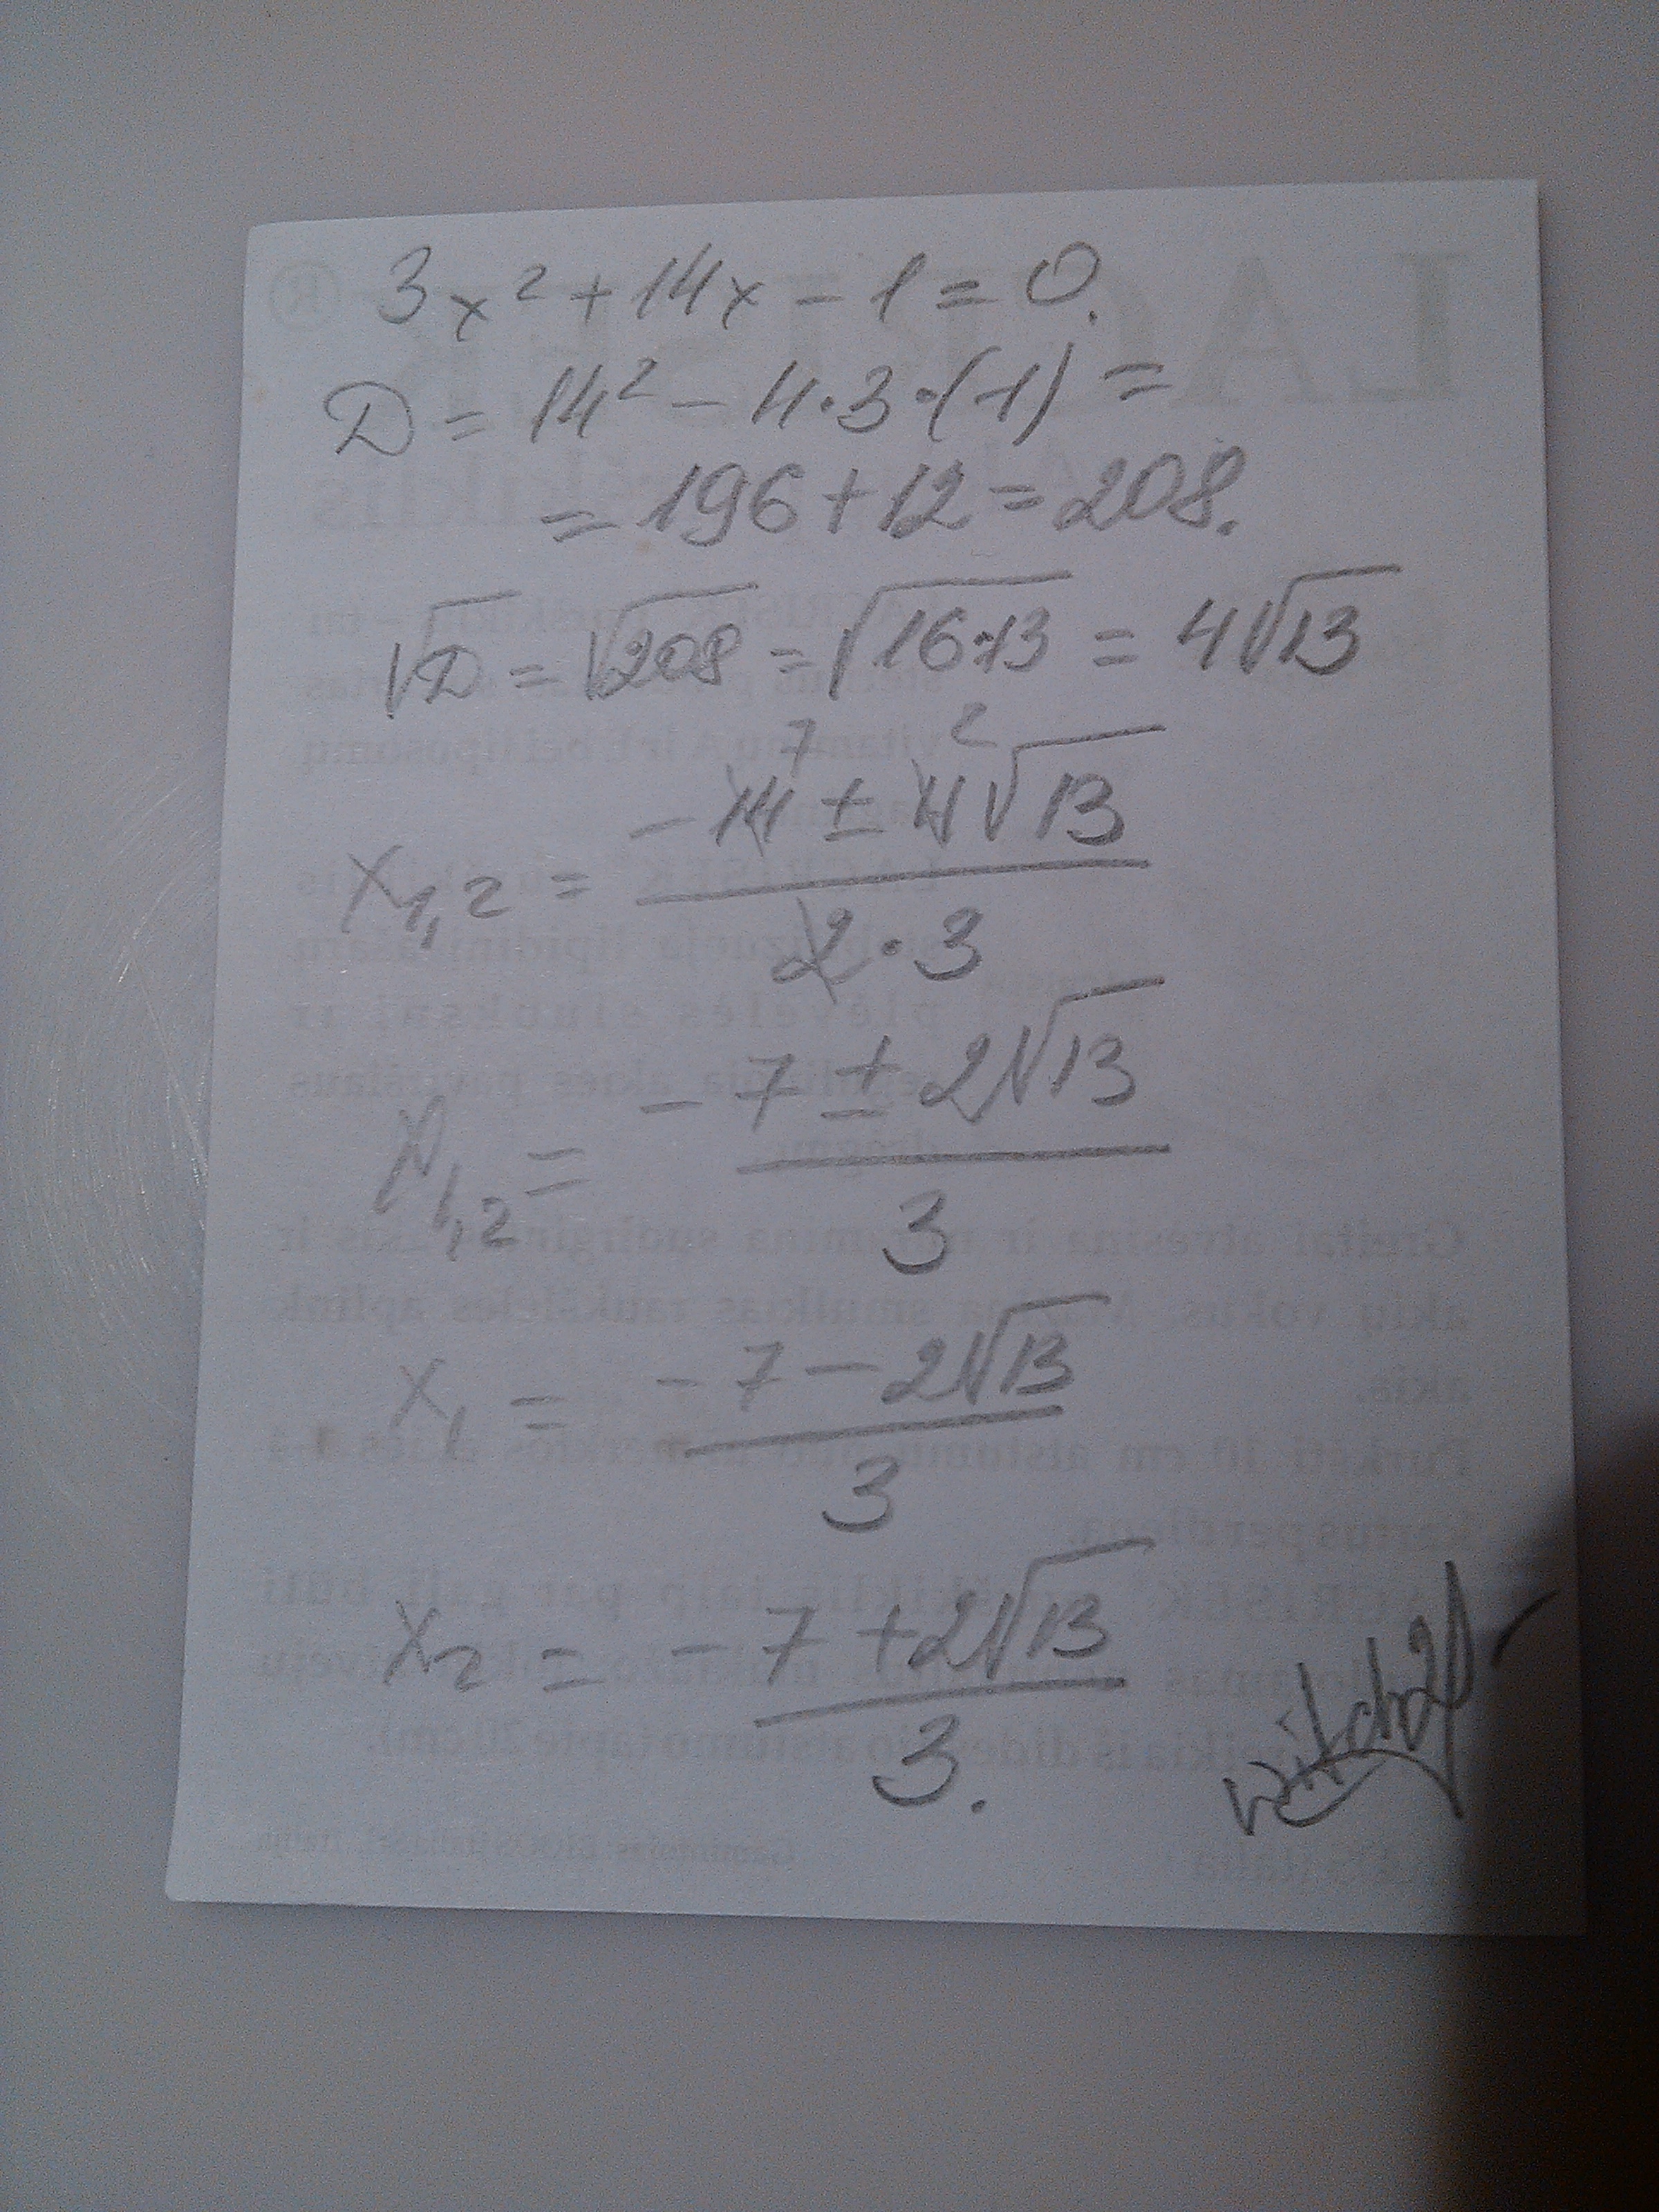 3x² + 14x - 1 = 0.
D = 14² - 4·3·(-1) =
= 196 + 12 = 208.
√D = √208 = √16·13 = 4√13
7 2
-14 ± 4√13
x₁,₂ =
2·3
-7 ± 2√13
x₁,₂ =
3
x₁ = -7 - 2√13
3
x₂ = -7 + 2√13
3.